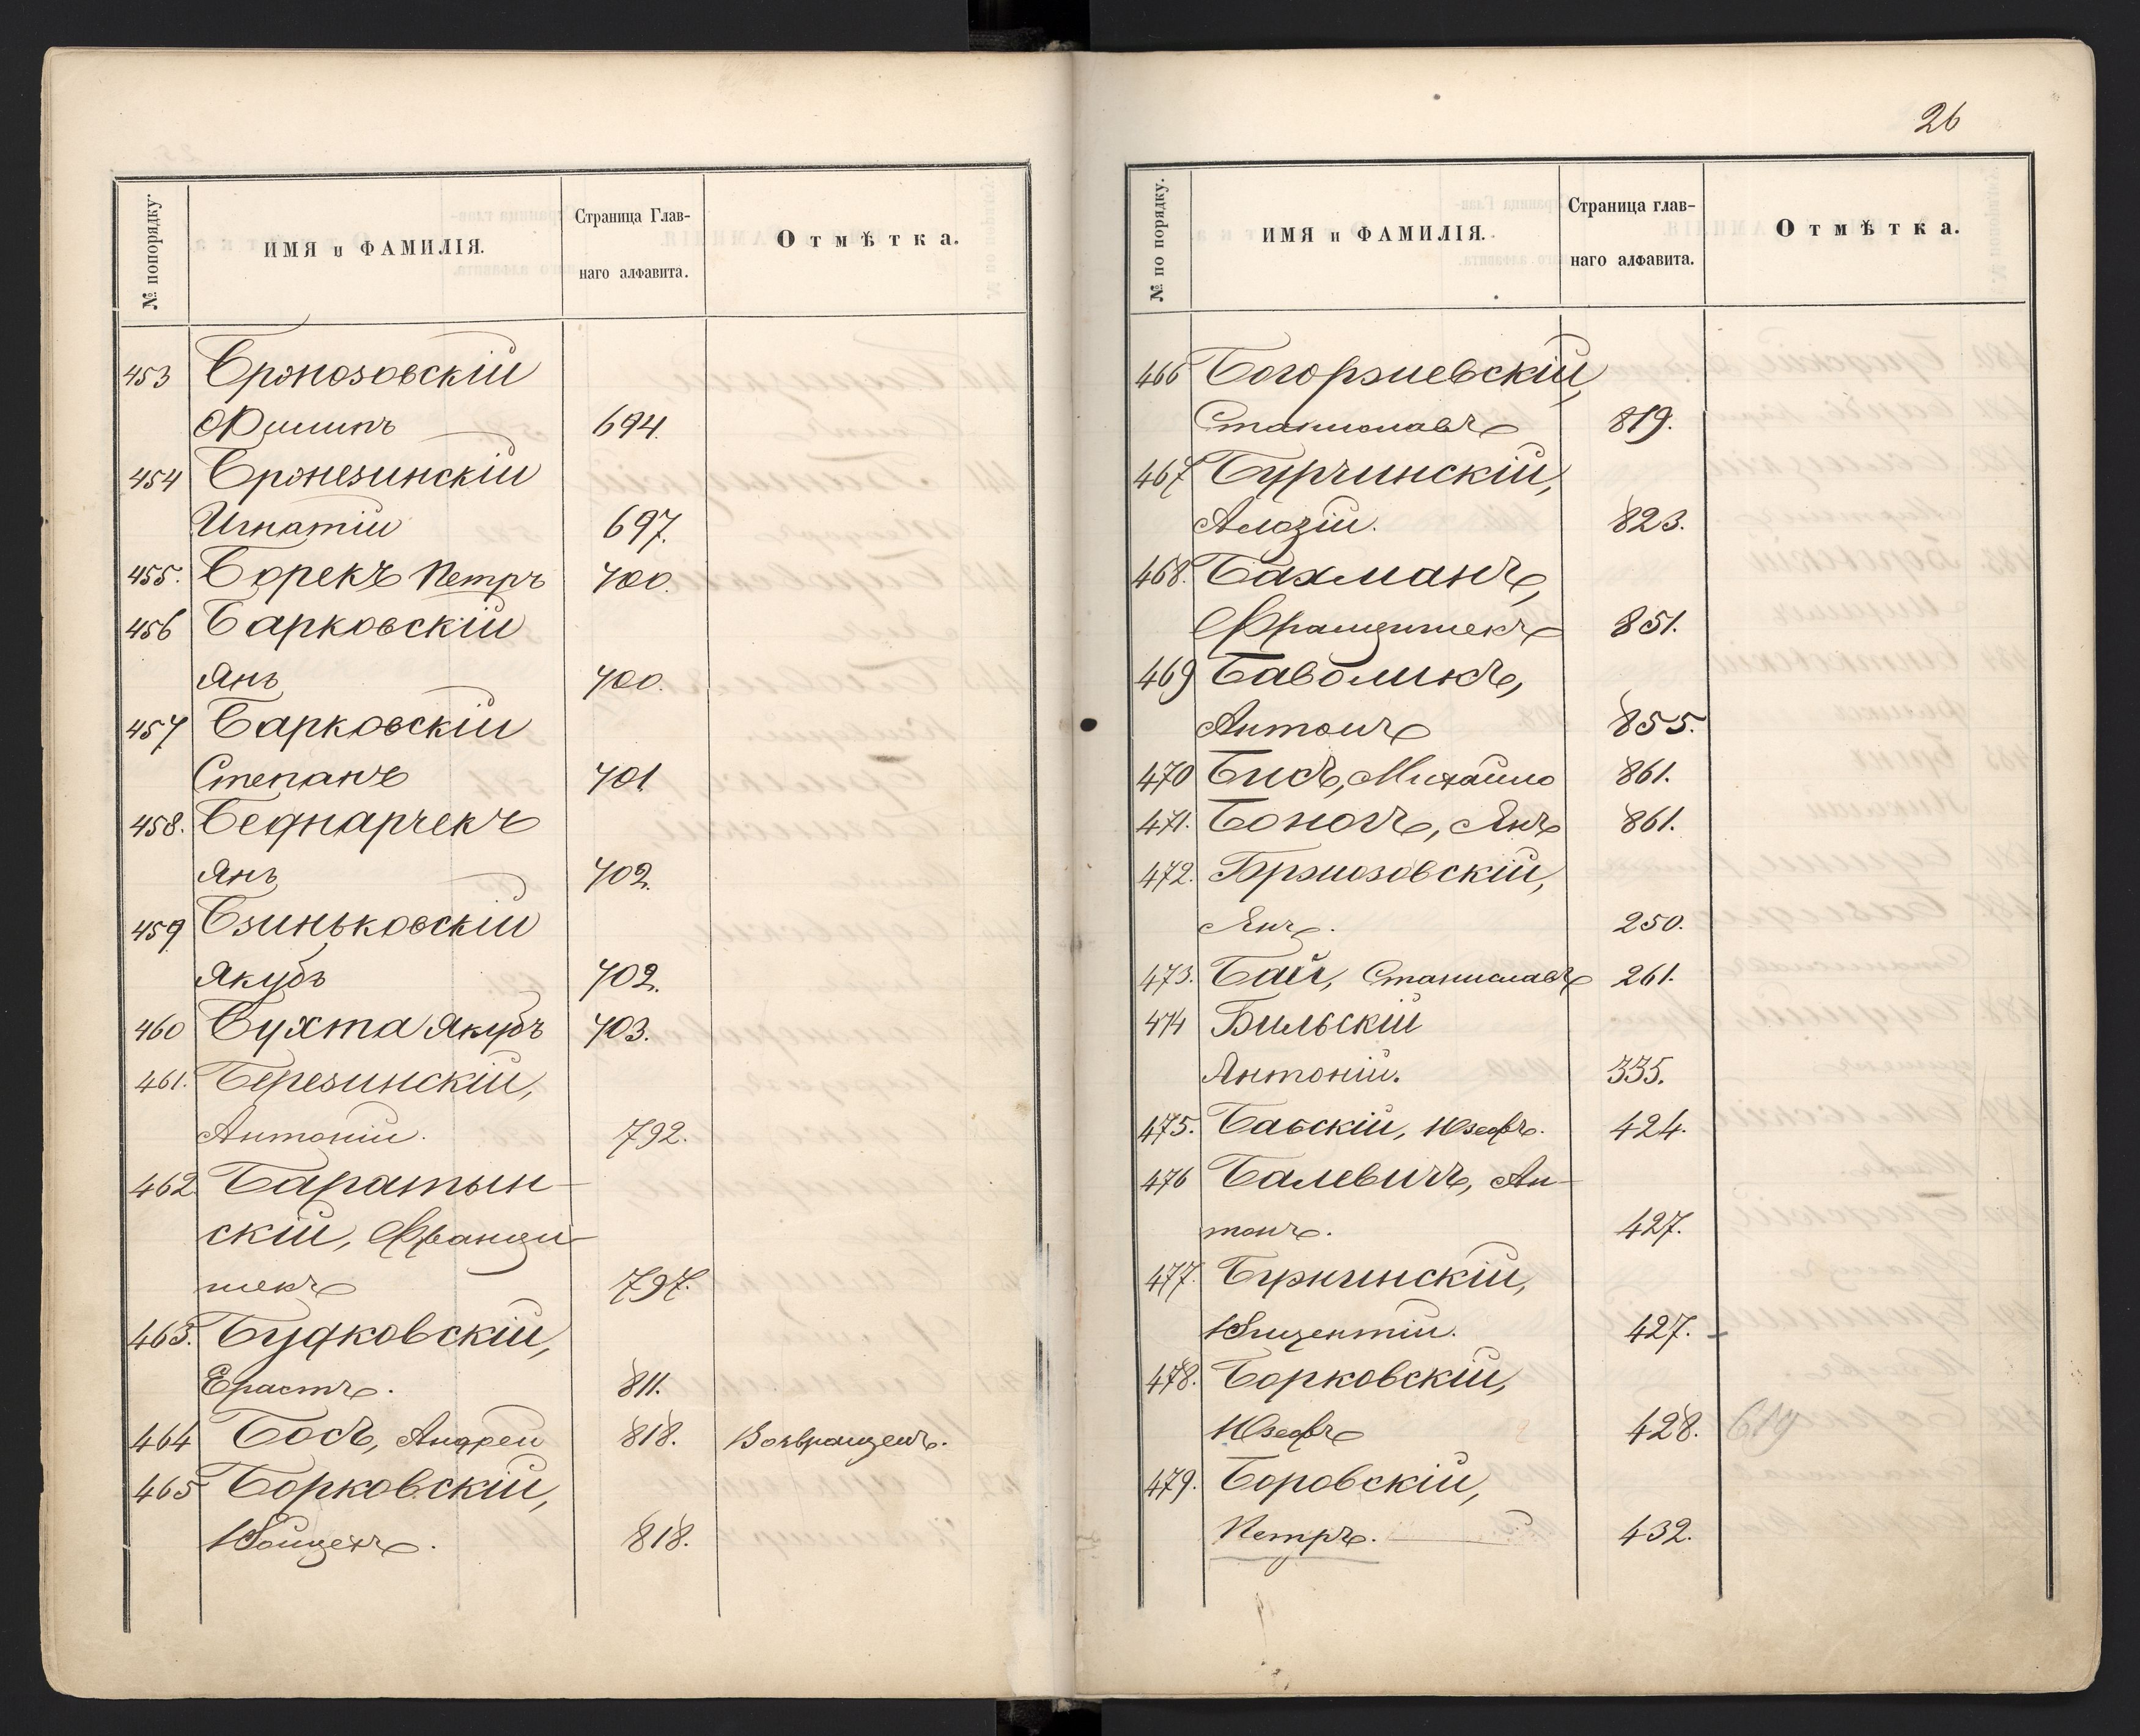 № попорядку.
ИМЯ и ФАМИЛІЯ.
Страница Глав-
наго алфавита.
Отмѣтка.
453 Бржозовскій
Филипъ 694.
454 Бржезинскій
Игнатій 697.
455. Борекъ Петръ 700.
456 Барковскій
Янъ 700.
457 Барковскій
Степанъ 701
458. Беднарчекъ
Янъ 702.
459 Бзиньковскій
Якубъ 702.
460 Бухта Якубъ 703.
461. Березинскій,
Антоній. 792.
462. Баратын-
скій, Францы-
шекъ 797.
463. Будковскій,
Ерастъ. 811.
464 Босъ, Андрей 818. Возвращенъ.
465 Борковскій,
Войцехъ. 818.
26
№ по порядку.
ИМЯ и ФАМИЛІЯ.
Страница глав-
наго алфавита.
Отмѣтка.
466 Богоржевскій,
Станиславъ 819.
467 Бурчинскій,
Алозій. 823.
468. Бахманъ,
Францишекъ 851.
469 Баволикъ,
Антонъ 855.
470 Михайло 861.
471. Янъ 861.
472. Бржозовскій,
Янъ. 250.
473. Бай, Станиславъ 261.
474 Бильскій
Антоній. 335.
475. Бабскій, Юзефъ. 424.
476 Балевичъ, Ан-
тонъ. 427.
477. Буржинскій,
Винцентій. 427.
478. Борковскій,
Юзефъ 428. 619
479. Боровскій,
Петръ. 432.